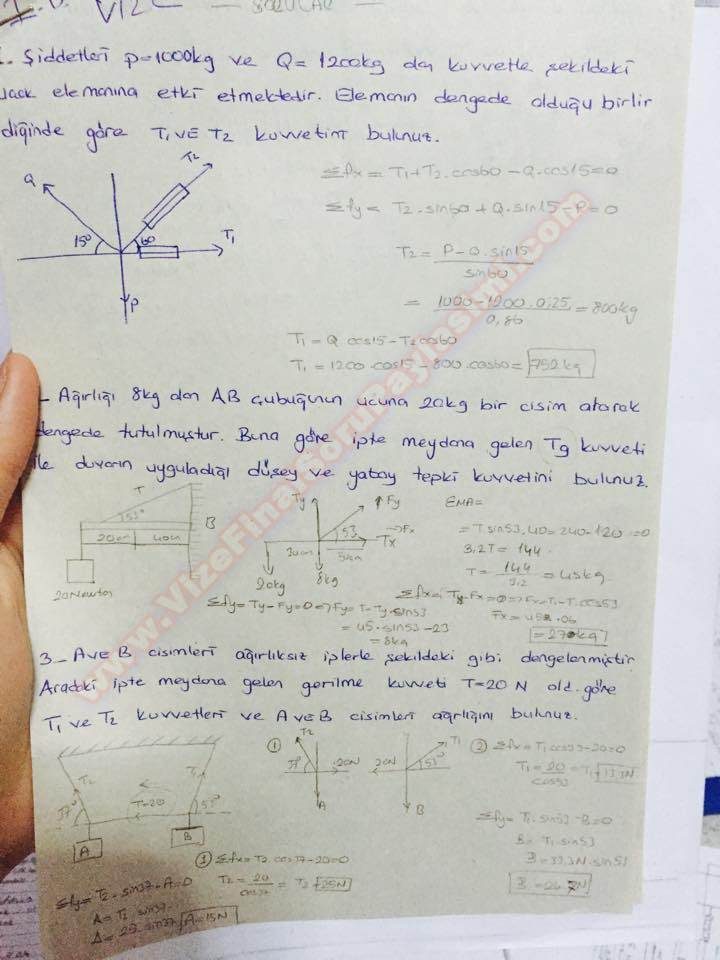 VİZE — SORULAR —
Şiddetleri P=1000kg ve Q= 1200kg olan kuvvetle şekildeki
elemanına etki etmektedir. Elemanın dengede olduğu bilir
diğinde göre T1 VE T2 kuvvetini bulunuz.
Q
T2
15°
60
T1
P
Σfx = T1+T2.cos60 - Q.cos15=0
Σfy = T2.sin60+Q.sin15-P=0
T2 = P-Q.sin15
sin60
= 1000-1200.0,25 = 800kg
0,86
T1=Q cos15-T2cos60
T1=1200.cos15-800.cos60= 752kg
- Ağırlığı 8kg olan AB çubuğunun ucuna 20kg bir cisim atarak
dengede tutulmuştur. Buna göre ipte meydana gelen Tg kuvveti
ile duvarın uyguladığı düşey ve yatay tepki kuvvetini bulunuz.
T
53°
B
20cm
40cm
20Newton
Ty
Fy
53
Fx
Tx
20kg
8kg
ΣMA=
=Tsin53.40=240-120=0
3,2T= 144
T= 144 = 45kg
3,2
Σfy= Ty-Fy=0
= 45.sin53-23
= 8kg
= 270kg
3_ A ve B cisimleri ağırlıksız iplerle şekildeki gibi dengelenmiştir
Aradaki ipte meydana gelen gerilme kuvveti T=20 N old. göre
T1 ve T2 kuvvetleri ve A ve B cisimleri ağırlığını bulunuz.
T2
T1
37°
T=20
53°
A
B
1
T2
37°
20N
A
20N
T1
53°
B
2 Σfx= T1cos53-20=0
T1= 20
cos53
Σfy= T1.sin53-B=0
B= T1.sin53
B=33.3N.sin53
1 Σfx= T2.cos37-20=0
T2= 20 = T2=25N
cos37
Σfy= T2.sin37-A=0
A= T2 sin37
A= 25.sin37 A=15N
www.VizeFinalSoruPaylasimi.com